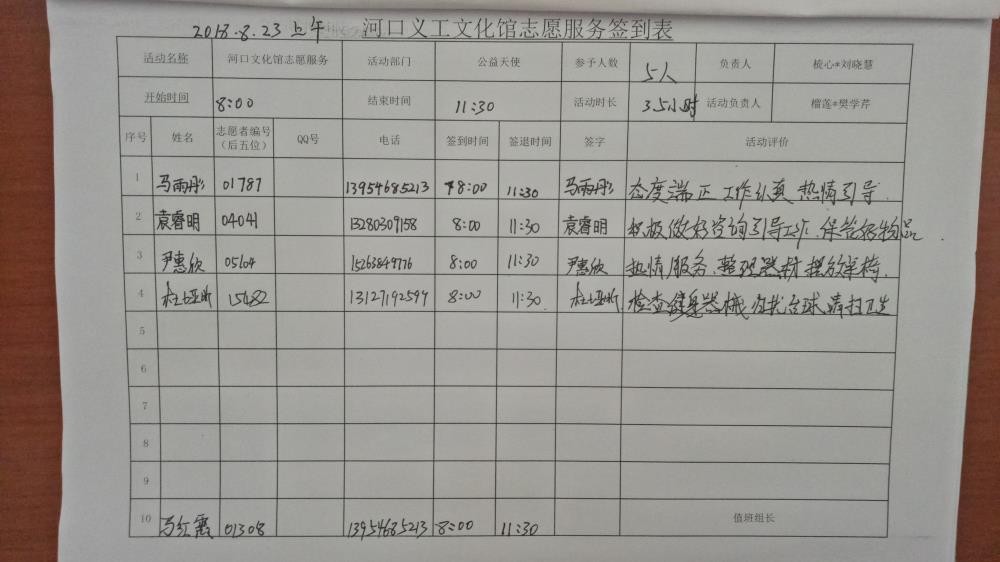 2018.8.23 上午 河口义工文化馆志愿服务签到表
活动名称 河口文化馆志愿服务 活动部门 公益天使 参予人数 5人 负责人 梳心*刘晓慧
开始时间 8:00 结束时间 11:30 活动时长 3.5小时 活动负责人 榴莲*樊学芹
序号 姓名 志愿者编号（后五位） QQ号 电话 签到时间 签退时间 签字 活动评价
1 马雨彤 01787 13954685213 8:00 11:30 马雨彤 态度端正 工作认真 热情引导.
2 袁睿明 04041 13280309158 8:00 11:30 袁睿明 积极做好咨询引导工作、保管好物品.
3 尹惠欣 05104 15263849776 8:00 11:30 尹惠欣 热情服务、整理器材 摆放桌椅.
4 杜亚昕 15482 13127192599 8:00 11:30 杜亚昕 检查健身器械 台球 清扫卫生
5
6
7
8
9
10 马红霞 01308 13954685213 8:00 11:30 值班组长